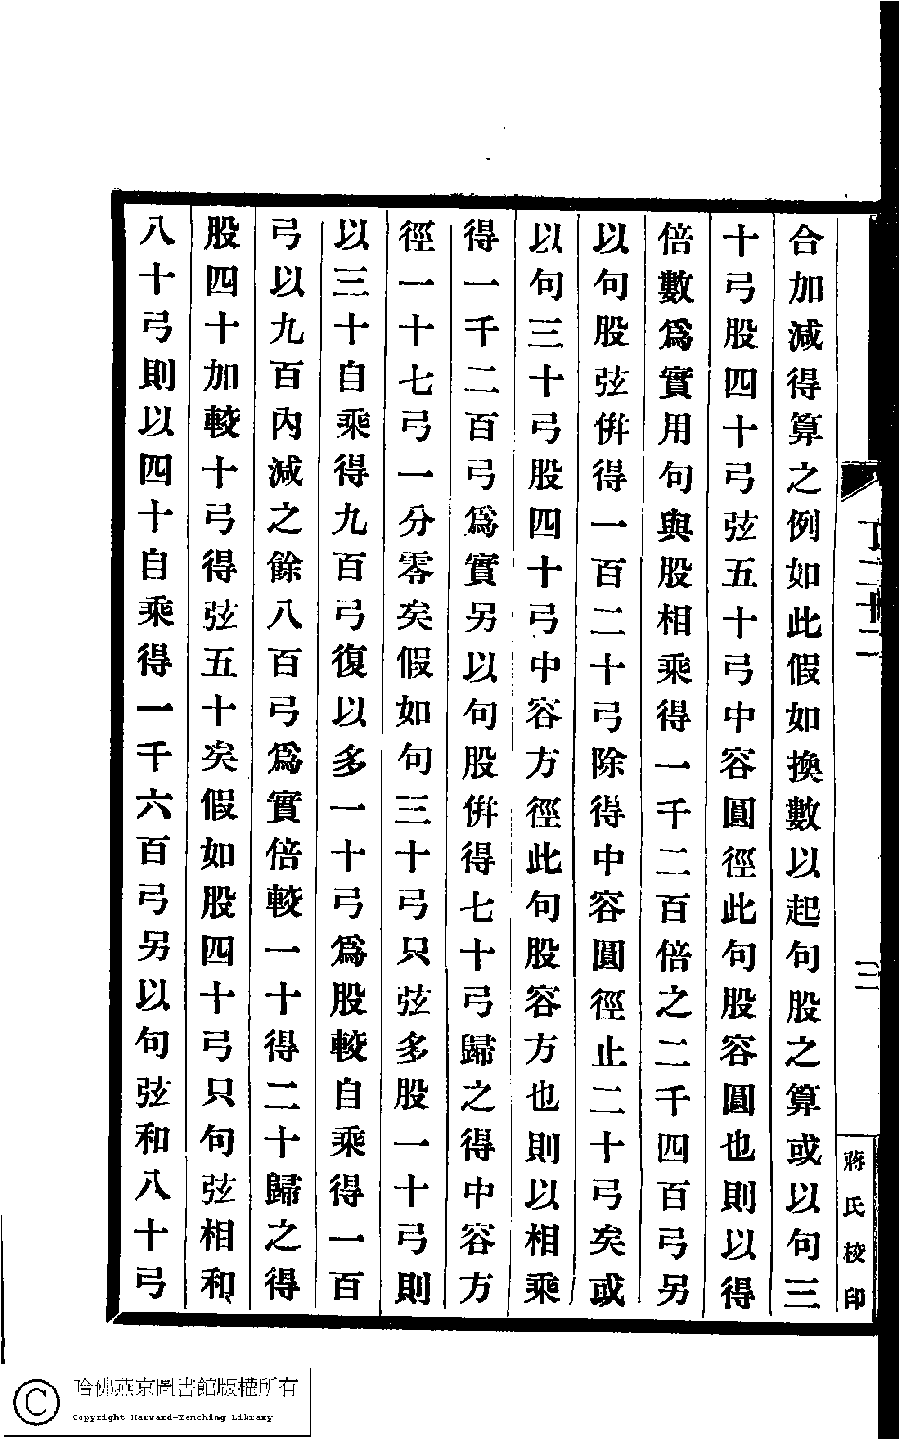 合加減得算之例如此假如換數以起句股之算或以句三
十弓股四十弓弦五十弓中容圓徑此句股容圓也則以得
倍數爲實用句與股相乘得一千二百倍之二千四百弓另
以句股弦倂得一百二十弓除得中容圓徑止二十弓矣或
以句三十弓股四十弓中容方徑此句股容方也則以相乘
得一千二百弓爲實另以句股倂得七十弓歸之得中容方
徑一十七弓一分零矣假如句三十弓只弦多股一十弓則
以三十自乘得九百弓復以多一十弓爲股較自乘得一百
弓以九百內減之餘八百弓爲實倍較一十得二十歸之得
股四十加較十弓得弦五十矣假如股四十弓只句弦相和
八十弓則以四十自乘得一千六百弓另以句弦和八十弓
二十二
三
蔣氏校印
哈佛燕京圖書館版權所有
Copyright Harvard-Yenching Library